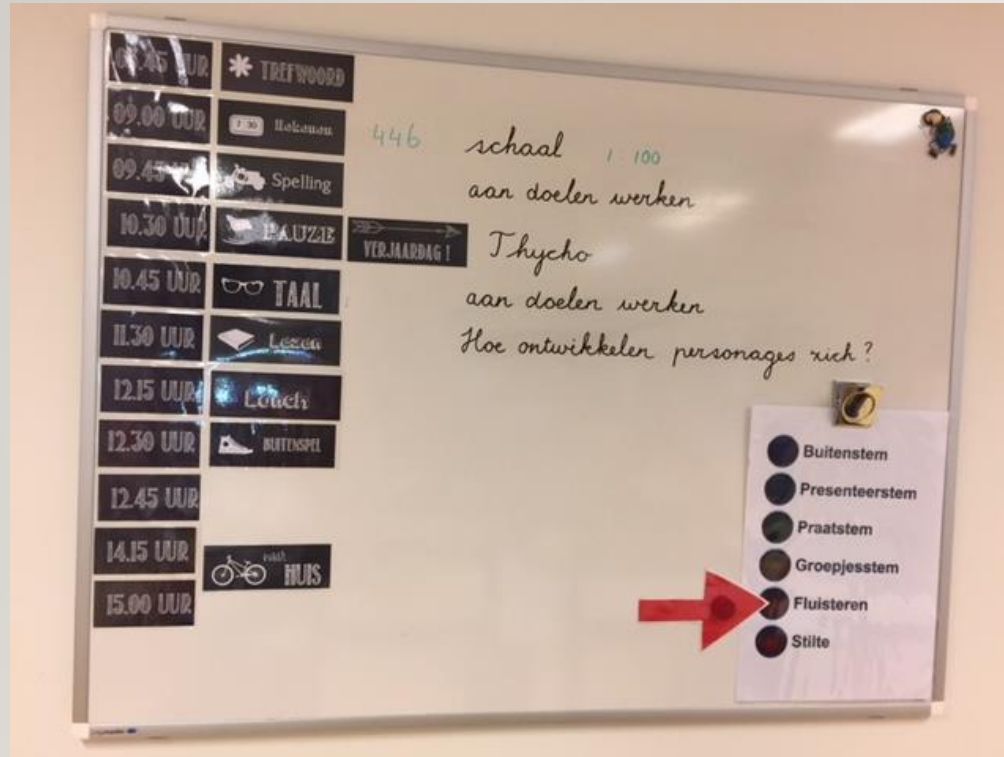 08.45 UUR TREFWOORD
09.00 UUR 7:30 Rekenen 446 schaal 1:100
09.45 UUR Spelling aan doelen werken
10.30 UUR PAUZE VERJAARDAG! Thycho
10.45 UUR TAAL aan doelen werken
11.30 UUR Lezen Hoe ontwikkelen personages zich?
12.15 UUR Lunch
12.30 UUR BUITENSPEL
12.45 UUR
14.15 UUR naar HUIS
15.00 UUR
Buitenstem
Presenteerstem
Praatstem
Groepjesstem
Fluisteren
Stilte